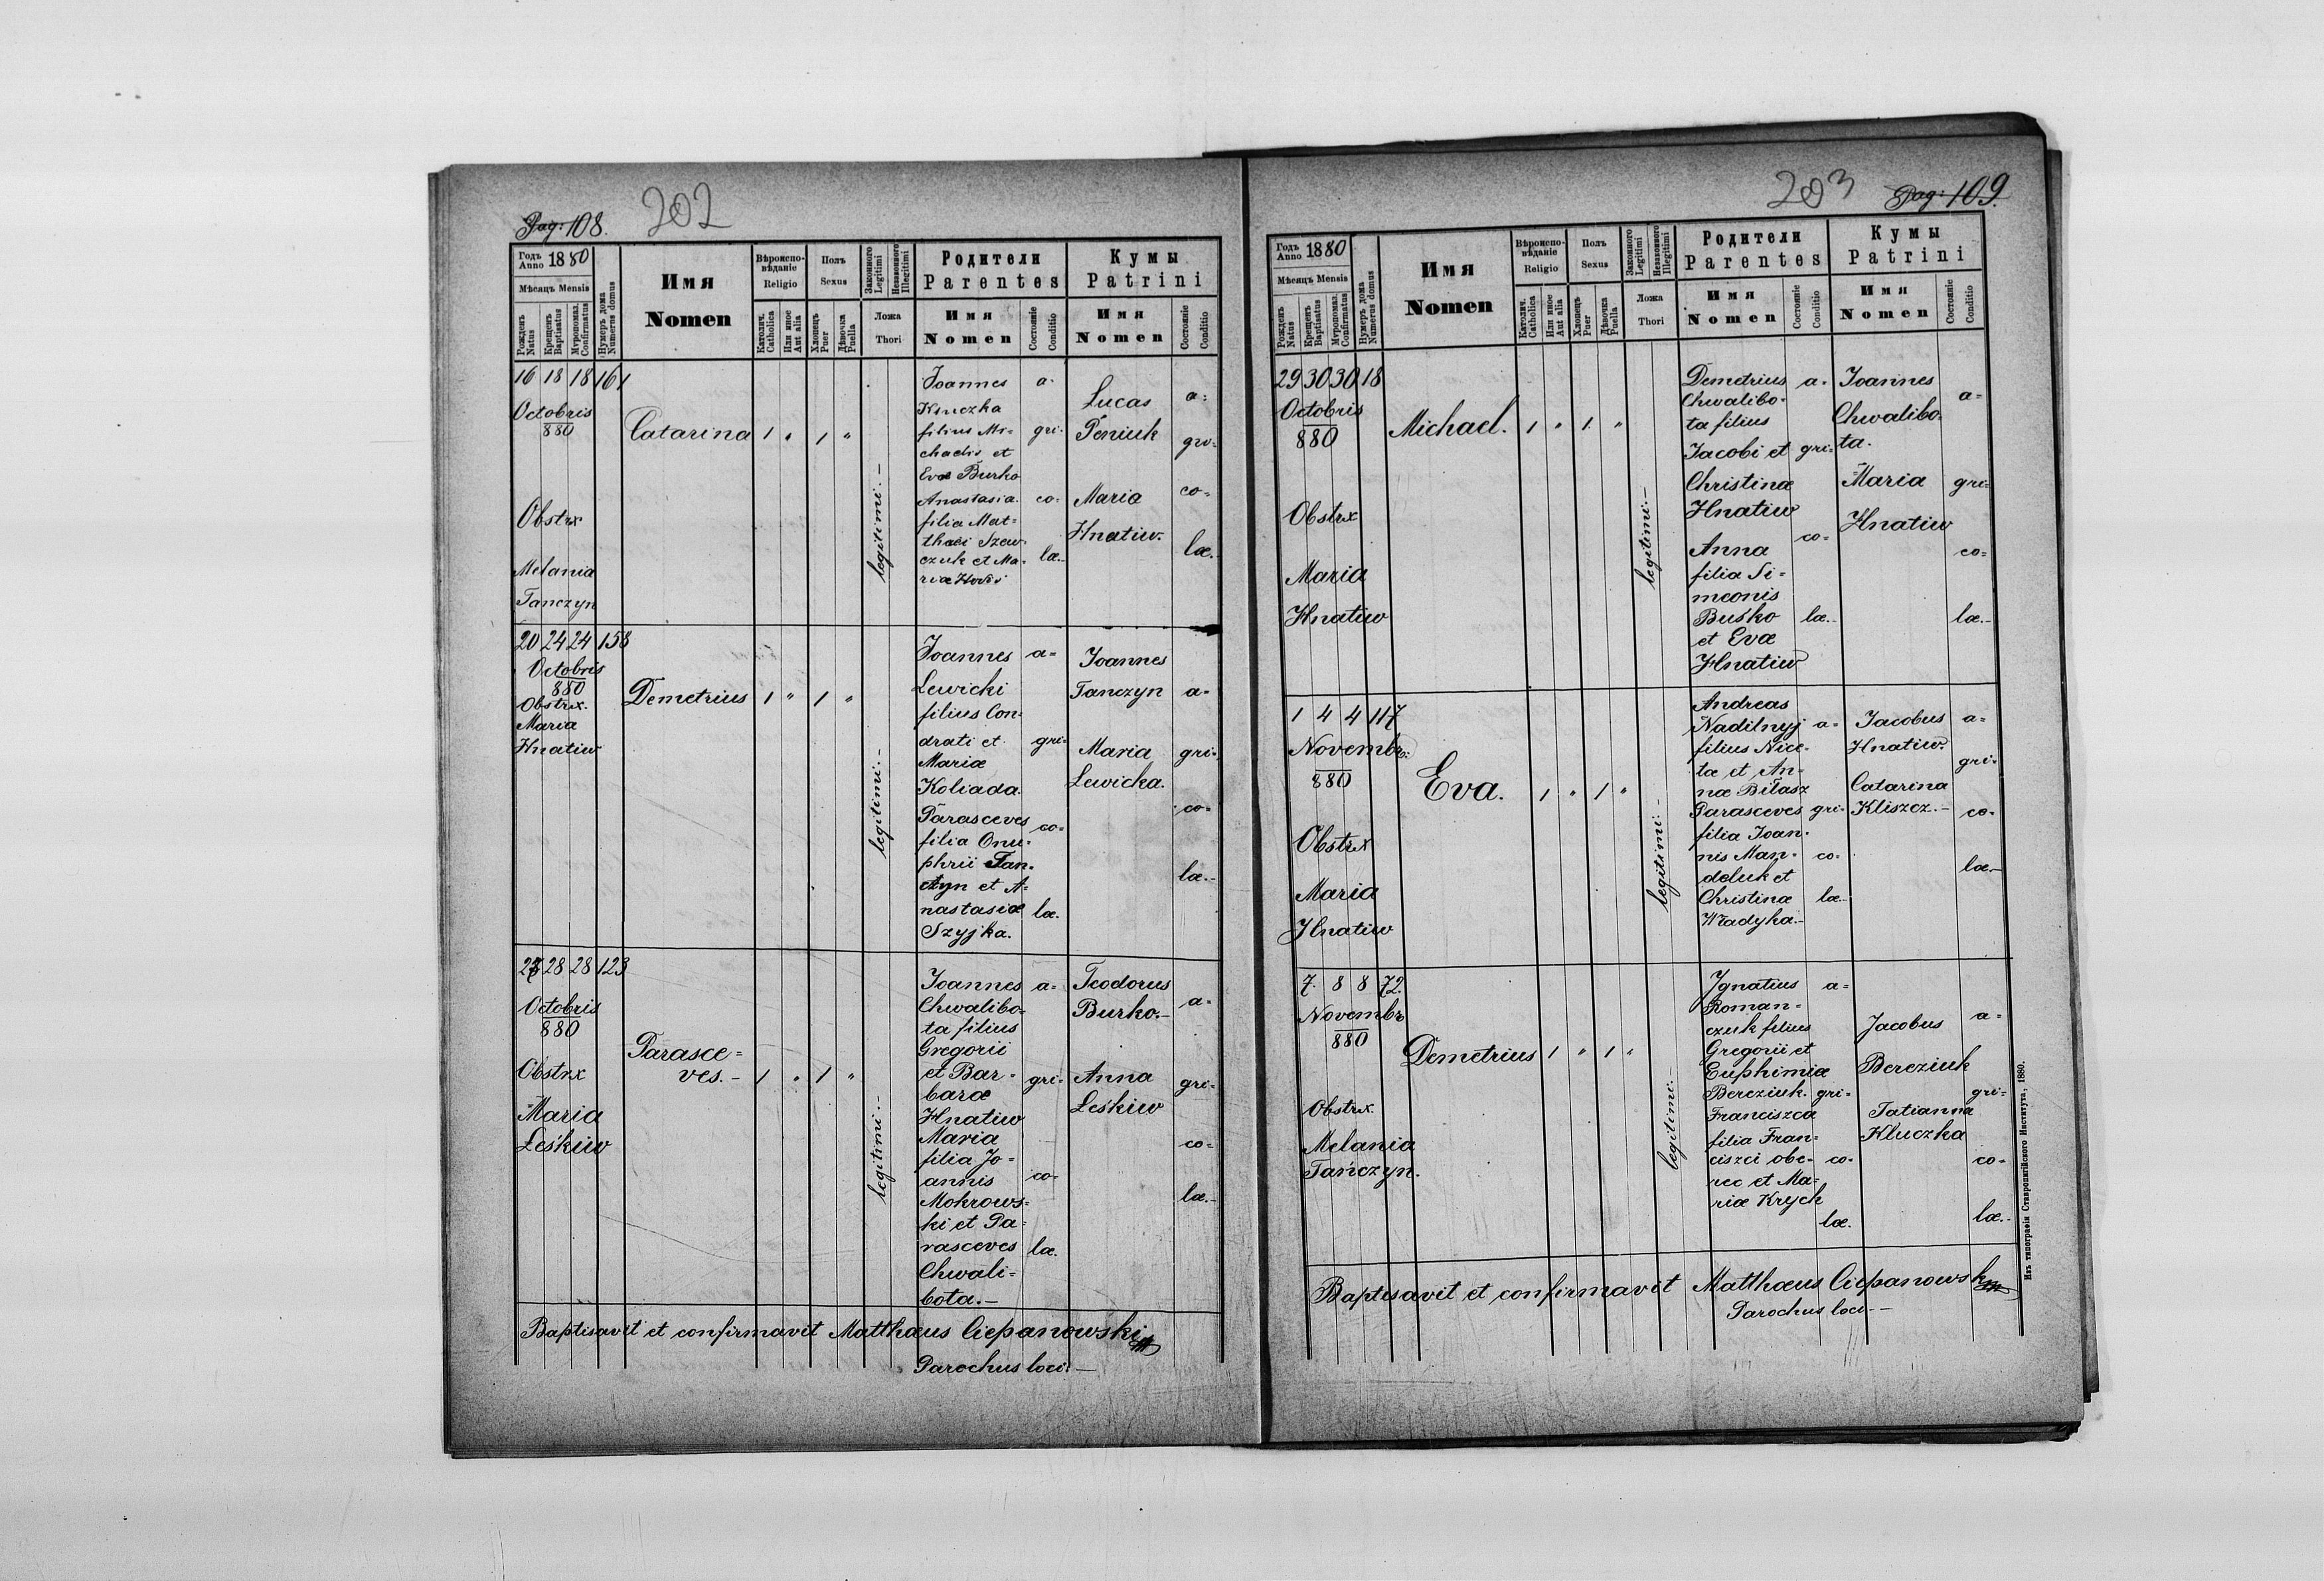 Pag: 108. 202
Годъ Anno 1880
Мѣсяцъ Mensis
Рожденъ Natus
Крещенъ Baptisatus
Мѵропомаз. Confirmatus
Нумеръ дома Numerus domus
Имя Nomen
Вѣроиспо-вѣданіе Religio
Католич. Catholica
Или иное Aut alia
Полъ Sexus
Хлопецъ Puer
Дѣвочка Puella
Законного Legitimi
Незаконного Illegitimi
Ложа Thori
Родители Parentes
Имя Nomen
Состояніе Conditio
Кумы Patrini
Имя Nomen
Состояніе Conditio
16 18 18 161
Octobris
880
Obstrx
Melania
Tanczyn
Catarina 1 " 1 "
legitimi.-
Joannes
Kluczka
filius Mi=
chaelis et
Evae Burko
Anastasia
filia Mat=
thaei Szew=
czuk et Ma=
riae
a=
gri=
co=
lae.-
Lucas
Peniuk
Maria
Hnatiw.
a=
gri=
co=
lae.-
20 24 24 158
Octobris
880
Obstrx.
Maria
Hnatiw
Demetrius 1 " 1 "
legitimi.-
Joannes
Lewicki
filius Con=
drati et
Mariae
Koliada.
Parasceves
filia Onu=
phrii Tan=
czyn et A=
nastasiae
Szyjka.
a=
gri=
co=
lae.
Joannes
Tanczyn
Maria
Lewicka.
a=
gri=
co=
lae.-
27 28 28 123
Octobris
880
Obstrx
Maria
Leśkiw
Parasce=
ves.- 1 " 1 "
legitimi.-
Joannes
Chwalibo=
ta filius
Gregorii
et Bar=
barae
Hnatiw
Maria
filia Jo=
annis
Mokrows=
ki et Pa=
rasceves
Chwali=
bota.-
a=
gri=
co=
lae.
Teodorus
Burko.-
Anna
Leśkiw
a=
gri=
co=
lae.-
Baptisavit et confirmavit Matthaeus Ciepanowski
Parochus loci.-
203 Pag: 109.
Годъ Anno 1880
Мѣсяцъ Mensis
Рожденъ Natus
Крещенъ Baptisatus
Мѵропомаз. Confirmatus
Нумеръ дома Numerus domus
Имя Nomen
Вѣроиспо-вѣданіе Religio
Католич. Catholica
Или иное Aut alia
Полъ Sexus
Хлопецъ Puer
Дѣвочка Puella
Законного Legitimi
Незаконного Illegitimi
Ложа Thori
Родители Parentes
Имя Nomen
Состояніе Conditio
Кумы Patrini
Имя Nomen
Состояніе Conditio
29 30 30 18
Octobris
880
Obstrx
Maria
Hnatiw
Michael. 1 " 1 "
legitimi.-
Demetrius
Chwalibo=
ta filius
Jacobi et
Christinae
Hnatiw
Anna
filia Si=
meonis
Buśko
et Evae
Hnatiw
a=
gri=
co=
lae.-
Joannes
Chwalibo=
ta.
Maria
Hnatiw
a=
gri=
co=
lae.-
1 4 4 117
Novembr:
880
Obstrx
Maria
Hnatiw
Eva. 1 " 1 "
legitimi.-
Andreas
Nadilnyj
filius Nice=
tae et An=
nae Biłasz
Parasceves
filia Joan=
nis Man=
deluk et
Christinae
Władyka.-
a=
gri=
co=
lae.-
Jacobus
Hnatiw.
Catarina
Kliszcz.-
a=
gri=
co=
lae.-
7. 8 8 72.
Novembr
880
Obstrx.
Melania
Tańczyn.
Demetrius 1 " 1 "
legitimi.-
Ignatius
Roman=
czuk filius
Gregorii et
Euphimiae
Bereziuk.
Franciszca
filia Fran=
ciszci obe=
rec et Ma=
riae Krych
a=
gri=
co=
lae.
Jacobus
Bereziuk
Tatianna
Kluczka
a=
gri=
co=
lae.-
Baptisavit et confirmavit Matthaeus Ciepanowski
Parochus loci.-
Изъ типографіи Ставропигійского Института, 1880.